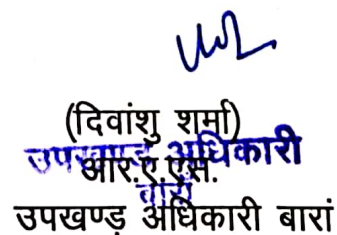 (दिवांशु शर्मा)
उपखण्ड अधिकारी
आर.ए.एस.
बारां
उपखण्ड अधिकारी बारां